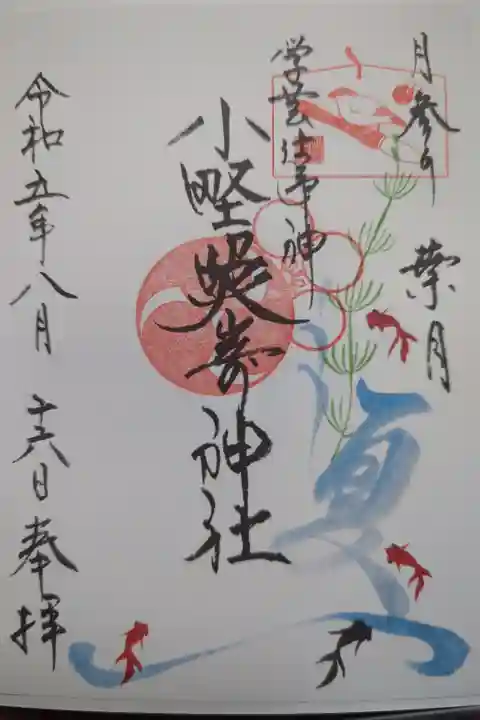 月参り 葉月
夏
学芸
小野照崎神社
令和五年八月 十六日 奉拝